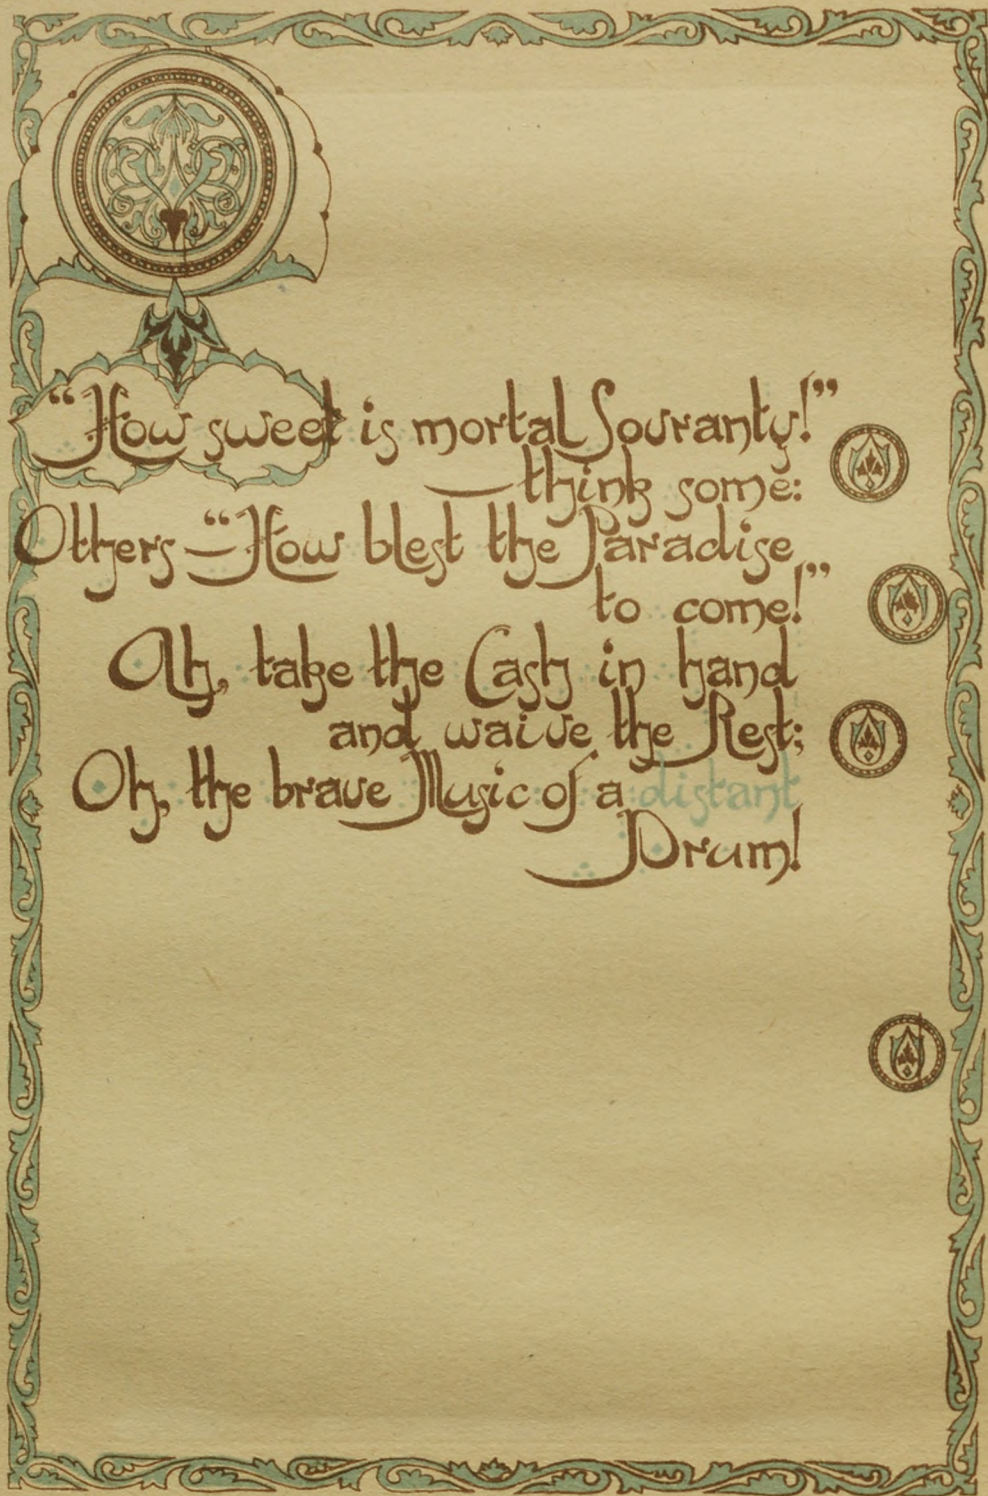 “How sweet is mortal Sovranty!”
—think some:
Others—“How blest the Paradise
to come!”
Ah, take the Cash in hand
and waive the Rest;
Oh, the brave Music of a distant
Drum!